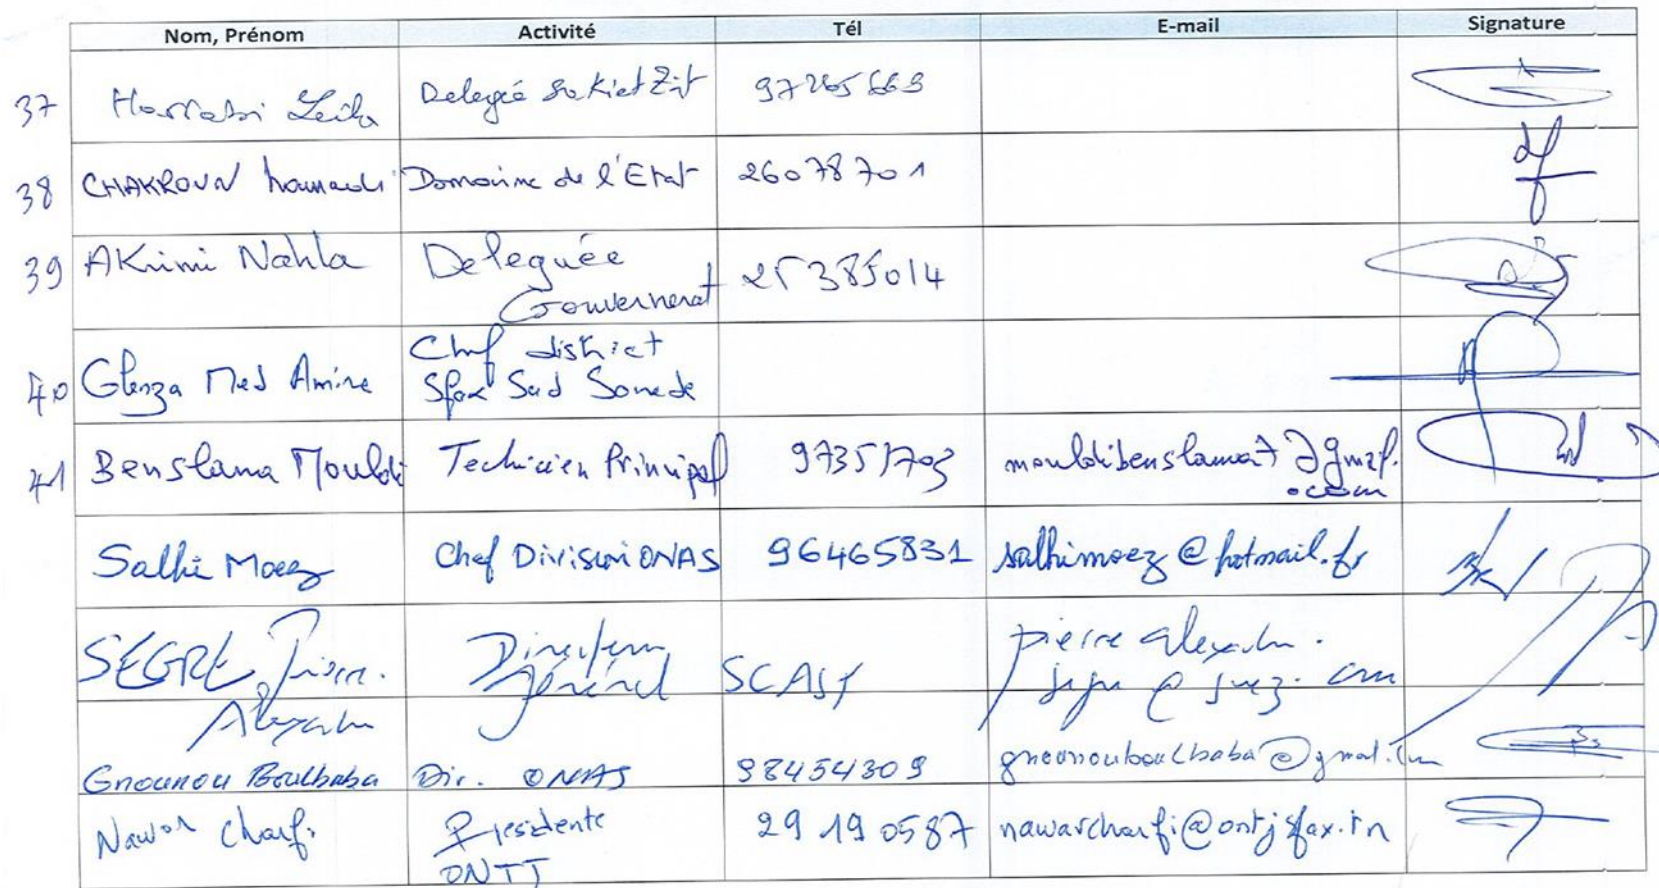 Nom, Prénom Activité Tél E-mail Signature
37 Harrabi Leila Delegée Sakiet Zit 97265669
38 CHAKROUN hamadi Domaine de l'Etat 26078701
39 AKrimi Nahla Deleguée 25385014
Gouvernerat
40 Med Amine Chef district
Sfax Sud Sonede
41 Benslama Mouldi Technicien Principal 97351703 mouldibenslama7@gmail.
.com
Salhi Moez Chef Division ONAS 96465831 salhimoez@hotmail.fr
SEGRE Pierre. Directeur pierre alexandre.
Général segre @ suez. com
Alexandre
Gnounou Boulbaba Dir. ONAS 98454309 gnounouboulbaba@gmail.com
Nawar Charfi Presidente 29 19 0587 nawarcharfi@ontjsfax.tn
ONTJ